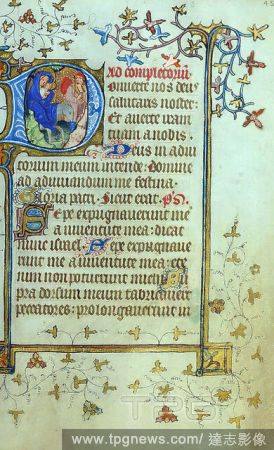 45
Ad completorium
Converte nos deus
salutaris noster
Et averte iram
tuam a nobis.
Deus in adiu
torium meum intende: Domine
ad adiuvandum me festina.
Gloria patri. Sicut erat. ps
Sepe expugnaverunt me
a iuventute mea: dicat
nunc israel. Sepe expugnave
runt me a iuventute mea: ete
nim non potuerunt michi. Su
pra dorsum meum fabricaverunt
peccatores: prolongaverunt in
TPG
www.tpgnews.com/達志影像